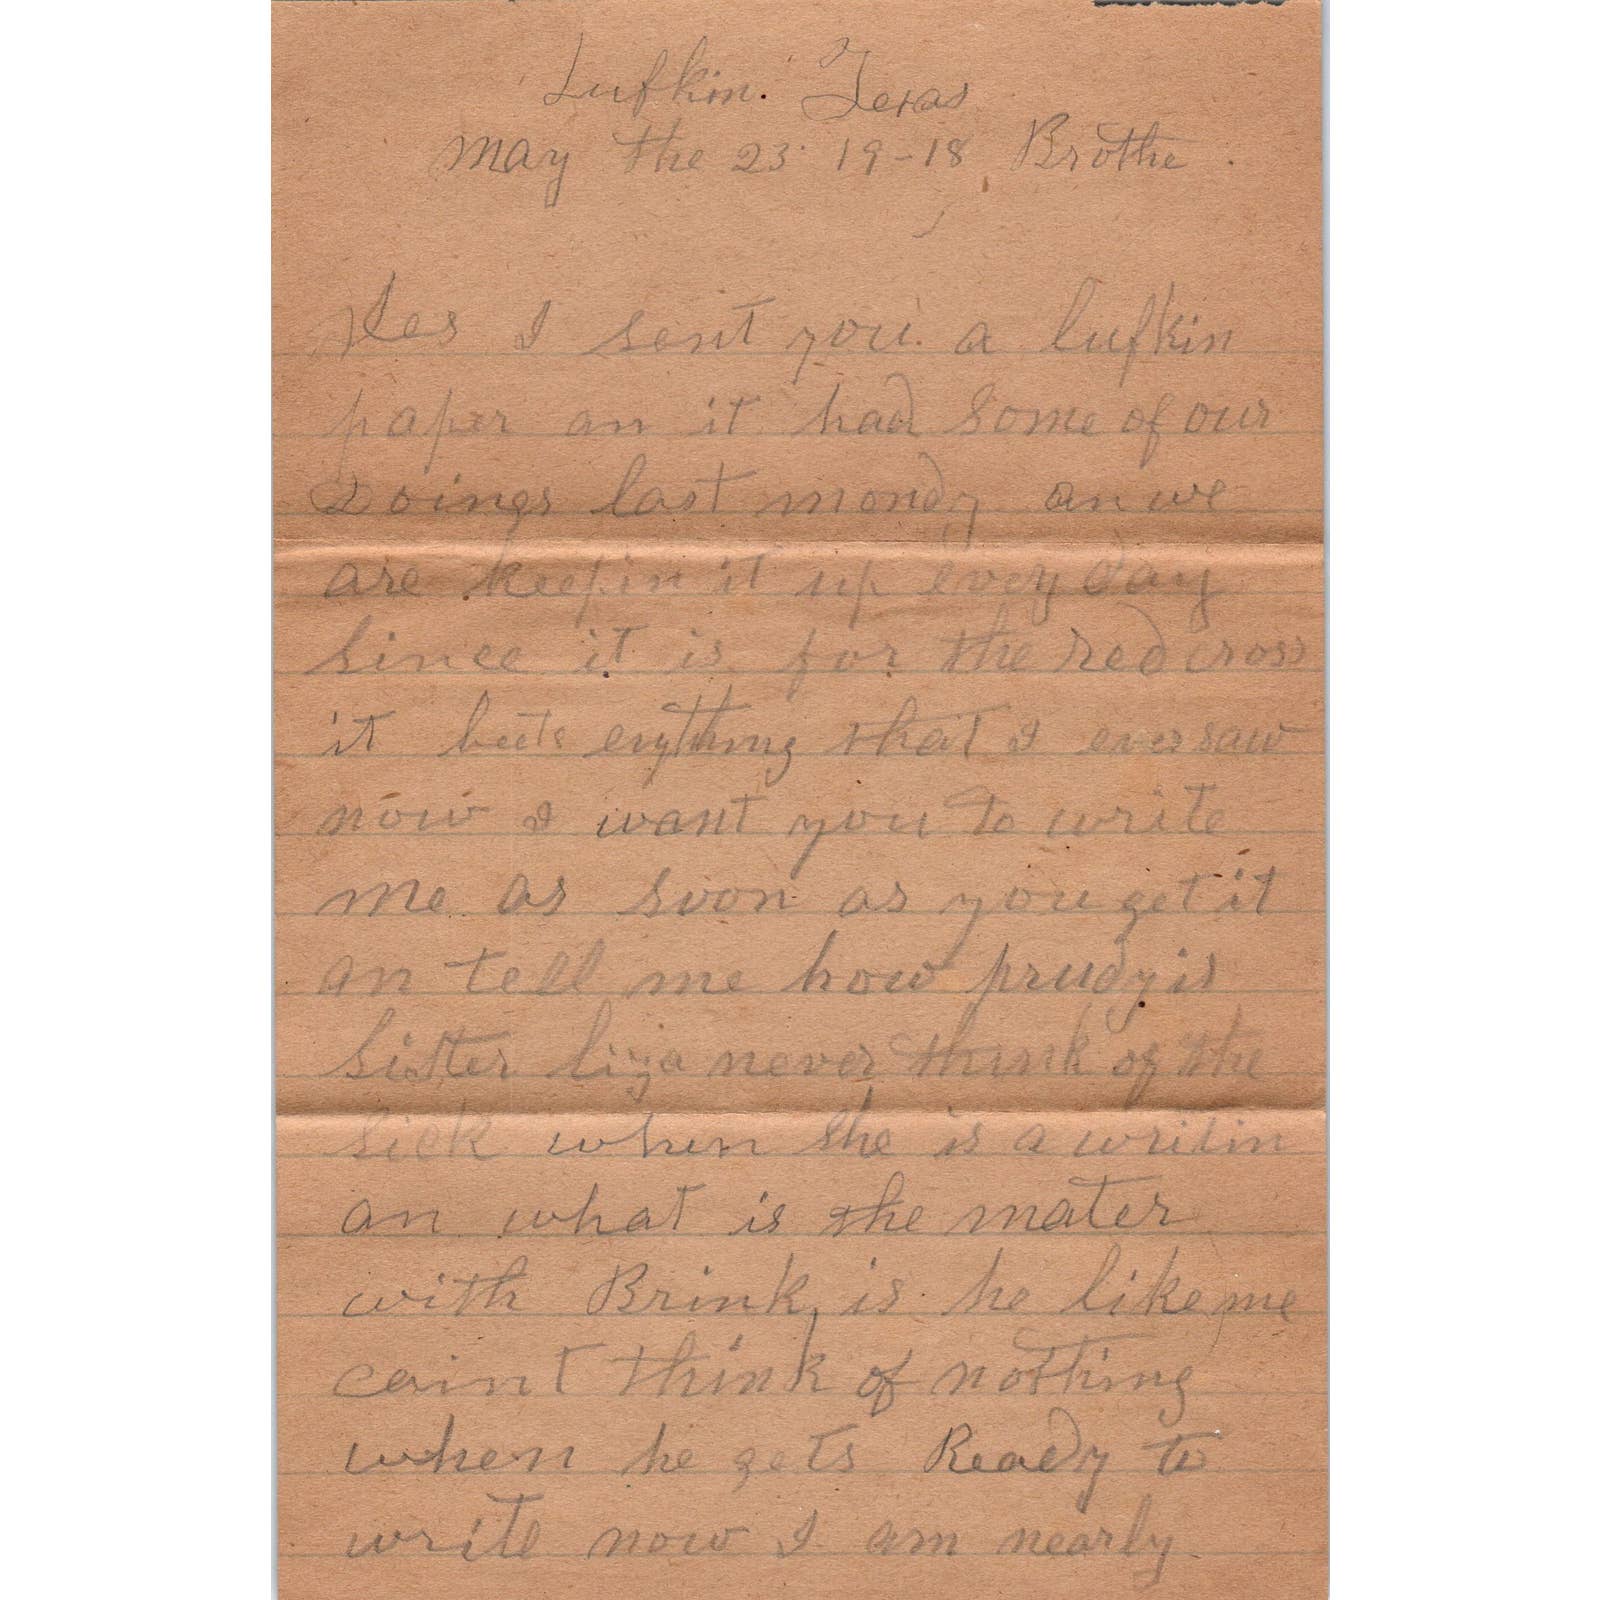 Lufkin. Texas
may the 23. 19-18 Brothe.
Yes I sent you. a lufkin
paper an it had some of our
Doings last mondy an we
are keepin it up evey day
since it is for the red cross
it beets erything that I ever saw
now I want you to write
me as soon as you get it
an tell me how prudy is
sister liza never think of the
sick when she is a writin
an what is the mater
with Brink, is he like me
caint think of nothing
when he gets Ready to
write now I am nearly